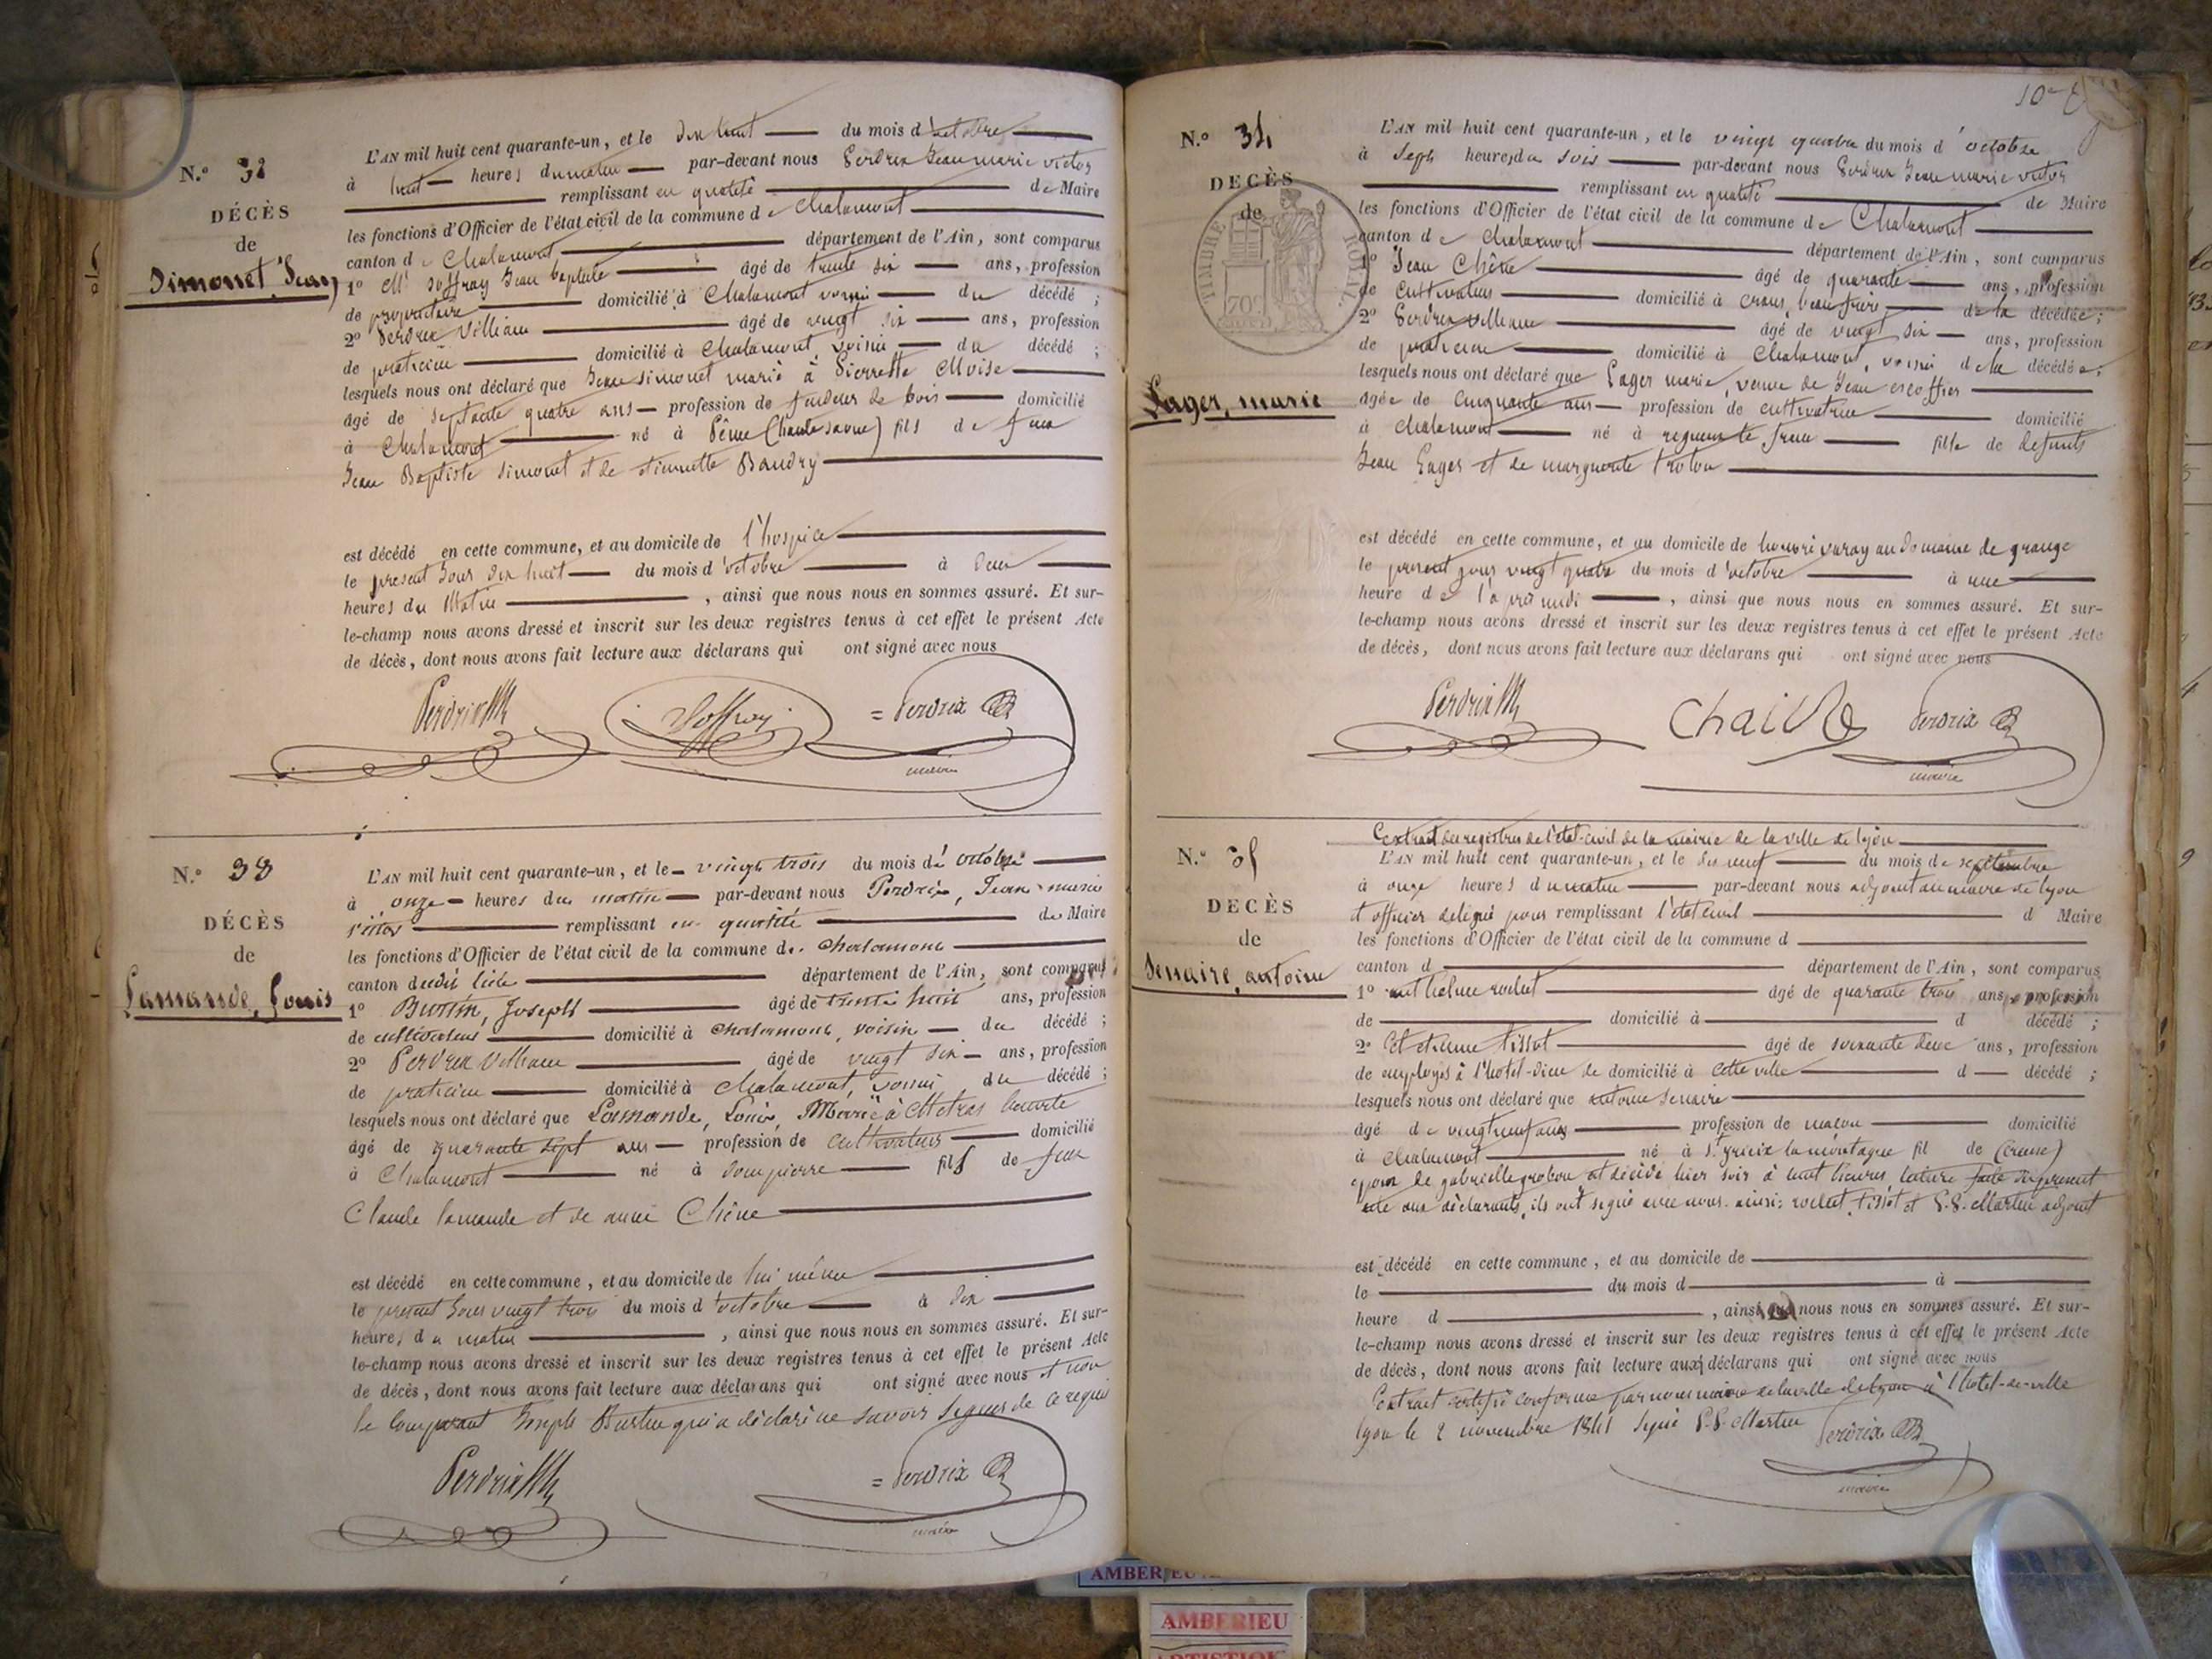 N.° 32
DÉCÈS
de
Simonet, Jean
L'AN mil huit cent quarante-un, et le dix huit du mois d'octobre
à huit heures du matin par-devant nous Perdrix Jean marie victor
remplissant en qualité de Maire
les fonctions d'Officier de l'état civil de la commune de Chalamont
canton de Chalamont département de l'Ain, sont comparus
1° Mr Joffray Jean baptiste âgé de trente six ans, profession
de propriétaire domicilié à Chalamont voisin du décédé ;
2° Perdrix Villiam âgé de vingt six ans, profession
de praticien domicilié à Chalamont voisin du décédé ;
lesquels nous ont déclaré que Jean Simonet marié à Pierrette Moise
âgé de septante quatre ans profession de fendeur de bois domicilié
à Chalamont né à (haute saone) fils de feu
Jean Baptiste Simonet et de etiennette Baudry
est décédé en cette commune, et au domicile de l'hospice
le present Jour dix huit du mois d'octobre à deux
heures du Matin, ainsi que nous nous en sommes assuré. Et sur-
le-champ nous avons dressé et inscrit sur les deux registres tenus à cet effet le présent Acte
de décès, dont nous avons fait lecture aux déclarans qui ont signé avec nous
Perdrix Joffray = Perdrix
maire
N.° 33
DÉCÈS
de
Lamande, Louis
L'AN mil huit cent quarante-un, et le vingt trois du mois de octobre
à onze heures du matin par-devant nous Perdrix, Jean marie
victor remplissant en qualité de Maire
les fonctions d'Officier de l'état civil de la commune de Chalamont
canton dudit lieu département de l'Ain, sont comparus
1° Burtin, Joseph âgé de trente huit ans, profession
de cultivateur domicilié à Chalamont, voisin du décédé ;
2° Perdrix Villiam âgé de vingt six ans, profession
de praticien domicilié à Chalamont, voisin du décédé ;
lesquels nous ont déclaré que Lamande, Louis, Marié à Metras benoite
âgé de quarante sept ans profession de cultivateur domicilié
à Chalamont né à dompierre fils de feu
Claude lamande et de anne Chêne
est décédé en cette commune, et au domicile de lui même
le present Jour vingt trois du mois d'octobre à dix
heures du matin, ainsi que nous nous en sommes assuré. Et sur-
le-champ nous avons dressé et inscrit sur les deux registres tenus à cet effet le présent Acte
de décès, dont nous avons fait lecture aux déclarans qui ont signé avec nous et non
le comparant Joseph Burtin qui a déclaré ne savoir signer de ce requis
Perdrix = Perdrix
maire
N.° 34
DECÈS
de
TIMBRE ROYAL
70c
Lager, marie
L'AN mil huit cent quarante-un, et le vingt quatre du mois d'octobre
à sept heures du soir par-devant nous Perdrix Jean marie victor
remplissant en qualité de Maire
les fonctions d'Officier de l'état civil de la commune de Chalamont
canton de Chalamont département de l'Ain, sont comparus
1° Jean Chêne âgé de quarante ans, profession
de cultivateur domicilié à crans, beau frère de la décédée ;
2° Perdrix villiam âgé de vingt six ans, profession
de praticien domicilié à Chalamont, voisin de la décédée ;
lesquels nous ont déclaré que Lager marie, veuve de Jean escoffier
âgée de cinquante ans profession de cultivatrice domicilié
à chalamont né à fille de defunts
Jean Lager et de marguerite
est décédé en cette commune, et au domicile de varay au domaine de grange
le present jour vingt quatre du mois d'octobre à une
heure de l'après midi, ainsi que nous nous en sommes assuré. Et sur-
le-champ nous avons dressé et inscrit sur les deux registres tenus à cet effet le présent Acte
de décès, dont nous avons fait lecture aux déclarans qui ont signé avec nous
Perdrix Perdrix
maire
N.° 35
DECÈS
de
Senaire, antoine
Extrait des registres de l'état-civil de la mairie de la ville de lyon
L'AN mil huit cent quarante-un, et le dix neuf du mois de septembre
à onze heures du matin par-devant nous adjoint au maire de lyon
et officier délégué pour remplissant l'état civil d Maire
les fonctions d'Officier de l'état civil de la commune d
canton d département de l'Ain, sont comparus
1° anthelme rochet âgé de quarante trois ans, profession
de domicilié à d décédé ;
2° et etienne tissot âgé de soixante deux ans, profession
de employés à l'hotel-dieu de domicilié à cette ville d décédé ;
lesquels nous ont déclaré que antoine Senaire
âgé de vingt neuf ans profession de macon domicilié
à chalamont né à St yrieix la montagne fil de (creuse)
époux de gabrielle est décédé hier soir à huit heures, lecture faite du present
acte aux déclarants, ils ont signé avec nous. ainsi: rochet, tissot et Martin adjoint
est décédé en cette commune, et au domicile de
le du mois d à
heure d, ainsi que nous nous en sommes assuré. Et sur-
le-champ nous avons dressé et inscrit sur les deux registres tenus à cet effet le présent Acte
de décès, dont nous avons fait lecture aux déclarans qui ont signé avec nous
Extrait certifié conforme par nous maire de la ville de lyon à l'hotel-de-ville
lyon le 2 novembre 1841 signé Martin Perdrix
maire
AMBERIEU
AMBERIEU